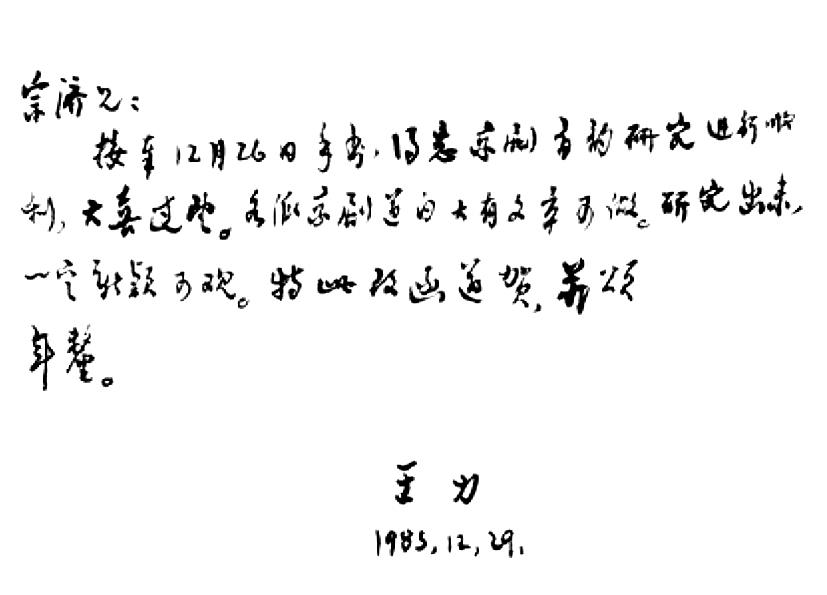 宗济兄：
接奉12月26日手书，得悉京剧音韵研究进行顺
利，大喜过望。京剧道白大有文章可做。研究出来，
一定新颖可观。特此致函道贺，并颂
年釐。
王力
1985.12.29.